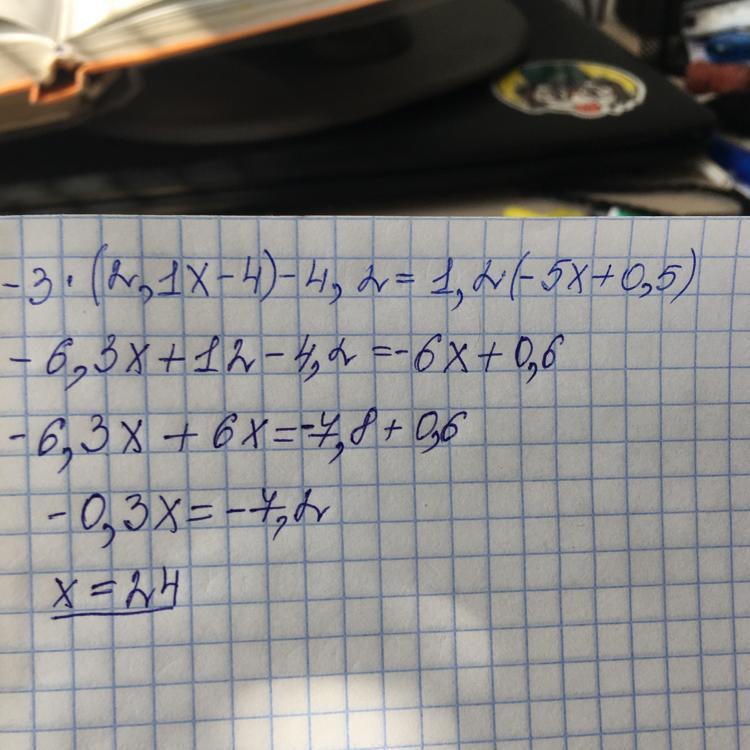 -3·(2,1x-4)-4,2=1,2(-5x+0,5)
-6,3x+12-4,2=-6x+0,6
-6,3x+6x=-7,8+0,6
-0,3x=-7,2
x=24